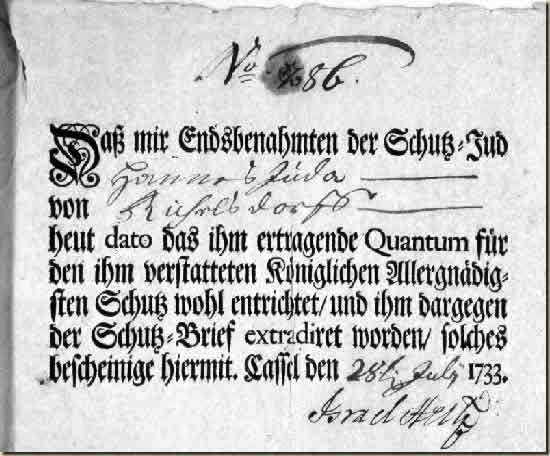 No. 86.
Daß mir Endsbenahmten der Schutz-Jud
Hannes Juda
von Richelsdorff
heut dato das ihm ertragende Quantum für
den ihm verstatteten Königlichen Allergnädig-
sten Schutz wohl entrichtet/ und ihm dargegen
der Schutz-Brief extradiret worden/ solches
bescheinige hiermit. Cassel den 28t July 1733.
Israel